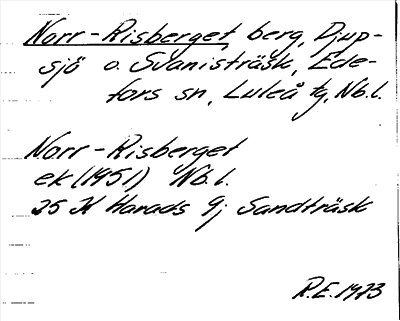 Norr-Risberget, berg, Djup-
sjö o. Svanisträsk, Ede-
fors sn, Luleå tg, Nb.l.
Norr-Risberget
ek (1951) Nb.l.
25 K Harads 9j Sandträsk
R.E. 1973